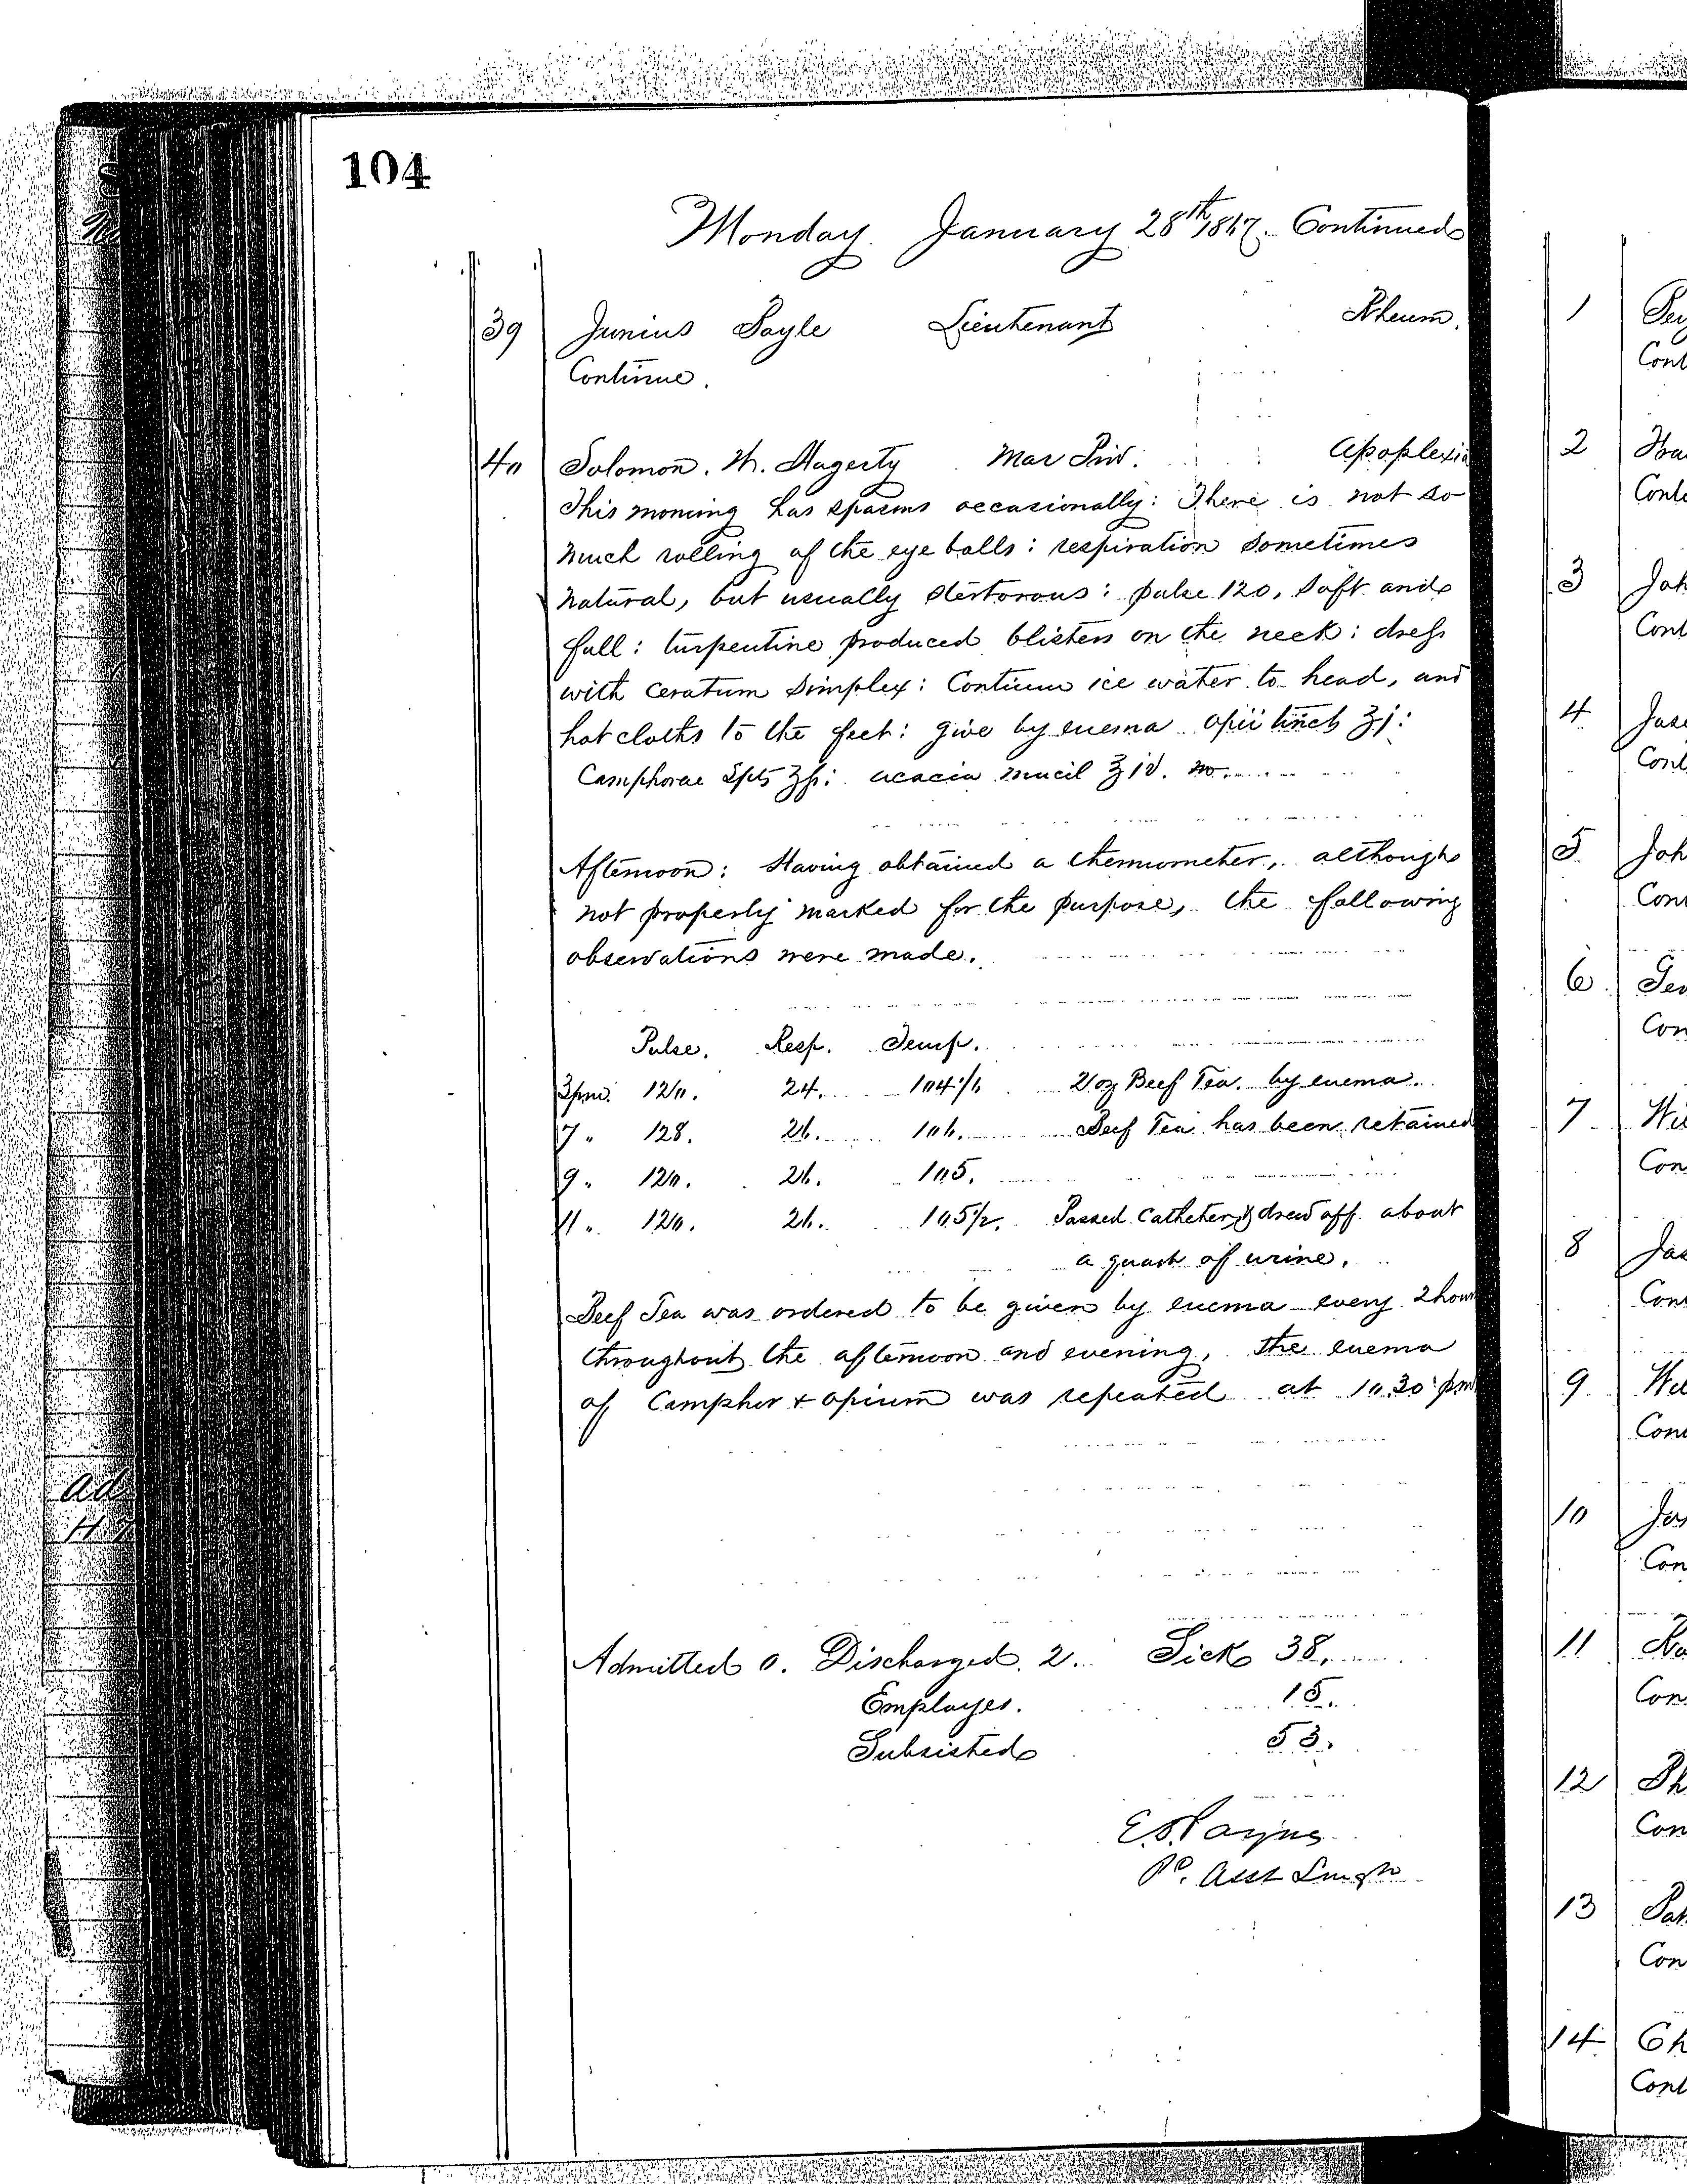 104
Monday January 28th 1867. Continued
39 Junius Sayle Lieutenant Rheum.
Continue.
40 Solomon. W. Hagerty Mar Priv. Apoplexia
This morning has spasms occasionally: There is not so
much rolling of the eye balls: respiration sometimes
natural, but usually stertorous: pulse 120, soft and
full: turpentine produced blisters on the neck: dress
with ceratum simplex: Continue ice water to head, and
hot cloths to the feet: give by enema opii tinct ʒj:
Camphorae Spts ʒſs: acacia mucil ℥iv. m.
Afternoon: Having obtained a thermometer, although
not properly marked for the purpose, the following
observations were made.
Pulse. Resp. Temp.
3pm. 120. 24. 104 2 oz Beef Tea. by enema.
7 " 128. 26. 106. Beef Tea has been retained
9 " 120. 26. 105.
11 " 120. 26. 105 1/2. Passed Catheter & drew off about
a quart of urine.
Beef Tea was ordered to be given by enema every 2 hours
throughout the afternoon and evening, the enema
of Camphor + opium was repeated at 10.30 pm
Admitted 0. Discharged. 2. Sick 38.
Employes. 15.
Subsisted 53.
E.S. Payne
Pd. Asst Surgn
1
Cont
2
Cont
3 Joh
Cont
4 Jas
Cont
5 Joh
Con
6 Geo
Con
7 Wil
Con
8 Jas
Con
9 Wil
Con
10 Jos
Con
11
Con
12
Con
13 Pat
Con
14 Ch
Cont